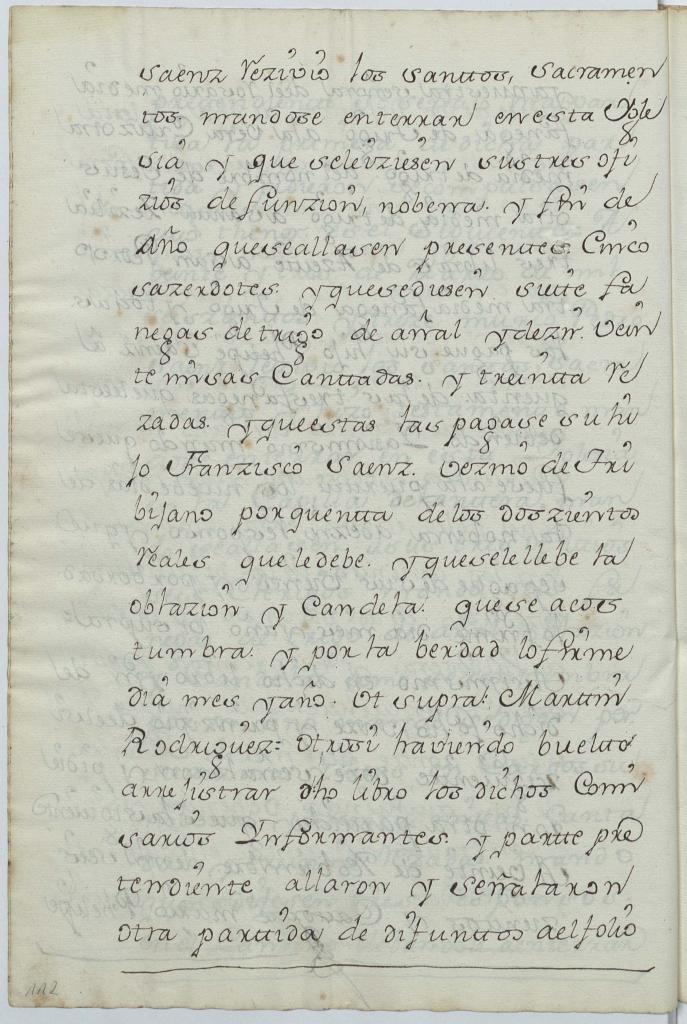 saenz Rezivio los santtos, sacramen
tos. mandose enterrar en esta Ygle
sia y que selehiziesen sus tres ofi
zios de funzion, nobena. y fin de
Año que se allasen presenttes. Cinco
sazerdotes. y que se diesen siette fa
negas de trigo de añal y dezir. Vein
te misas Canttadas. y treintta Re
zadas. y que estas las pagase su hi
Jo Franzisco Saenz. vezino de Tri
biJano por quentta de los doszientos
Reales que le debe. y que se le llebe la
oblazion y Candela. que se acos
tumbra. y por la berdad lo firme
dia mes y año. Ut supra: Marttin
Rodriguez: Otrosi haviendo buelto
arreJistrar dho libro los dichos Comi
sarios Informantes. y partte pre
tendiente allaron y señalaron
otra parttida de difunttos ael folio
112